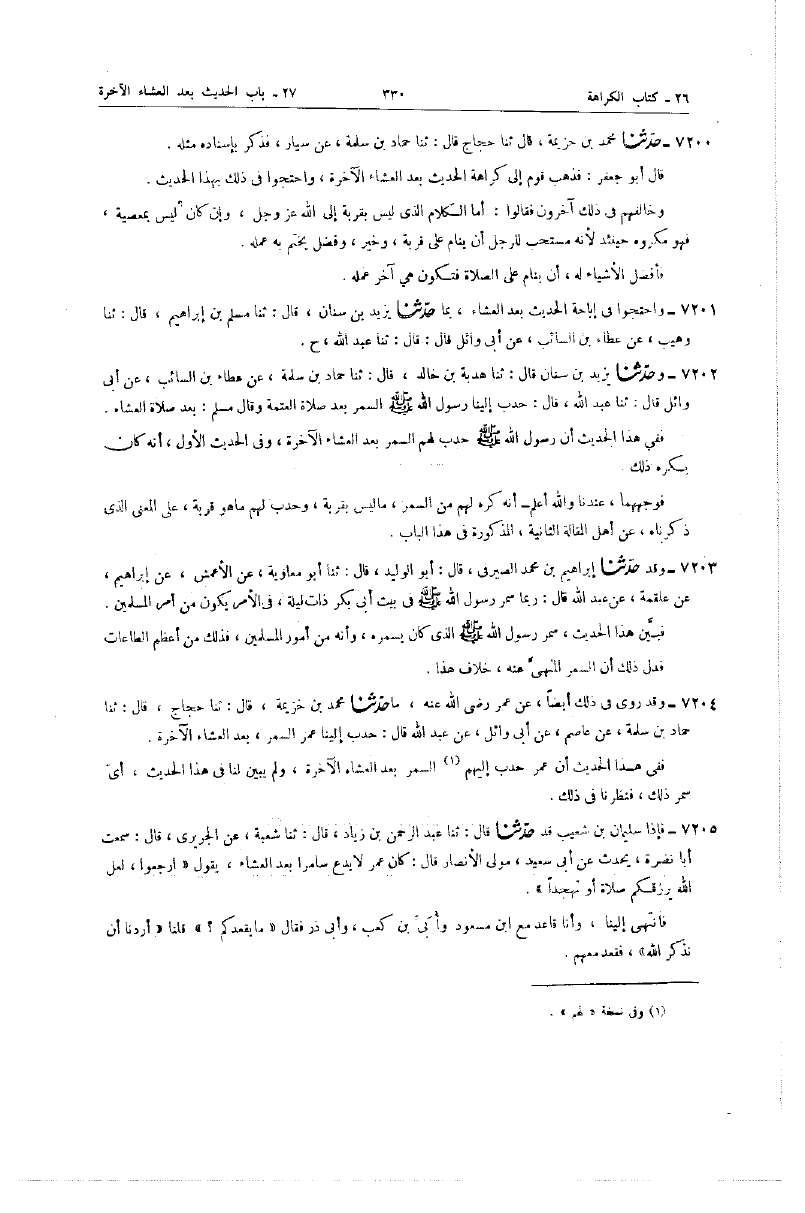 ٢٦ - كتاب الكراهة ٣٣٠ ٢٧ - باب الحديث بعد العشاء الآخرة
٧٢٠٠ - حدّثنا محمد بن خزيمة ، قال ثنا حجاج قال : ثنا حماد بن سلمة ، عن سيار ، فذكر بإسناده مثله .
قال أبو جعفر : فذهب قوم إلى كراهة الحديث بعد العشاء الآخرة ، واحتجوا فى ذلك بهذا الحديث .
وخالفهم فى ذلك آخرون فقالوا : أما الكلام الذى ليس بقربة إلى الله عز وجل ، وإن كان ليس بمعصية ،
فهو مكروه حينئذ لأنه مستحب للرجل أن ينام على قربة ، وخير ، وفضل يختم به عمله .
فأفضل الأشياء له ، أن ينام على الصلاة فتكون هي آخر عمله .
٧٢٠١ - واحتجوا فى إباحة الحديث بعد العشاء ، بما حدّثنا يزيد بن سنان ، قال : ثنا مسلم بن إبراهيم ، قال : ثنا
وهيب ، عن عطاء بن السائب ، عن أبى وائل قال : قال : ثنا عبد الله ، ح .
٧٢٠٢ - وحدّثنا يزيد بن سنان قال : ثنا هدبة بن خالد ، قال : ثنا حماد بن سلمة ، عن عطاء بن السائب ، عن أبى
وائل قال : ثنا عبد الله ، قال : حدب إلينا رسول الله ﷺ السمر بعد صلاة العتمة وقال مسلم : بعد صلاة العشاء .
ففي هذا الحديث أن رسول الله ﷺ حدب لهم السمر بعد العشاء الآخرة ، وفى الحديث الأول ، أنه كان
يكره ذلك
فوجههما ، عندنا والله أعلم - أنه كره لهم من السمر ، ماليس بقربة ، وحدب لهم ماهو قربة ، على المعنى الذى
ذكرناه ، عن أهل المقالة الثانية ، المذكورة فى هذا الباب .
٧٢٠٣ - وقد حدّثنا إبراهيم بن محمد الصيرفى ، قال : أبو الوليد ، قال : ثنا أبو معاوية ، عن الأعمش ، عن إبراهيم ،
عن علقمة ، عن عبد الله قال : ربما سمر رسول الله ﷺ فى بيت أبى بكر ذات ليلة ، فى الأمر يكون من أمر المسلمين .
فبيَّن هذا الحديث ، سمر رسول الله ﷺ الذى كان يسمره ، وأنه من أمور المسلمين ، فذلك من أعظم الطاعات
فدل ذلك أن السمر المنهىَّ عنه ، خلاف هذا .
٧٢٠٤ - وقد روى فى ذلك أيضاً ، عن عمر رضى الله عنه ، ما حدّثنا محمد بن خزيمة ، قال : ثنا حجاج ، قال : ثنا
حماد بن سلمة ، عن عاصم ، عن أبى وائل ، عن عبد الله قال : حدب إلينا عمر السمر ، بعد العشاء الآخرة .
ففى هذا الحديث أن عمر حدب إليهم (١) السمر بعد العشاء الآخرة ، ولم يبين لنا فى هذا الحديث ، أىّ
سمر ذلك ، فنظرنا فى ذلك .
٧٢٠٥ - فإذا سليمان بن شعيب قد حدّثنا قال : ثنا عبد الرحمن بن زياد ، قال : ثنا شعبة ، عن الجريرى ، قال : سمعت
أبا نضرة ، يحدث عن أبى سعيد ، مولى الأنصار قال : كان عمر لايدع سامرا بعد العشاء ، يقول « ارجعوا ، لعل
الله يرزقكم صلاة أو تهجداً » .
فانتهى إلينا ، وأنا قاعد مع ابن مسعود وأُبىّ بن كعب ، وأبى ذر فقال « مايقعدكم ؟ » قلنا « أردنا أن
نذكر الله » ، فقعد معهم .
(١) وفى نسخة « لهم » .